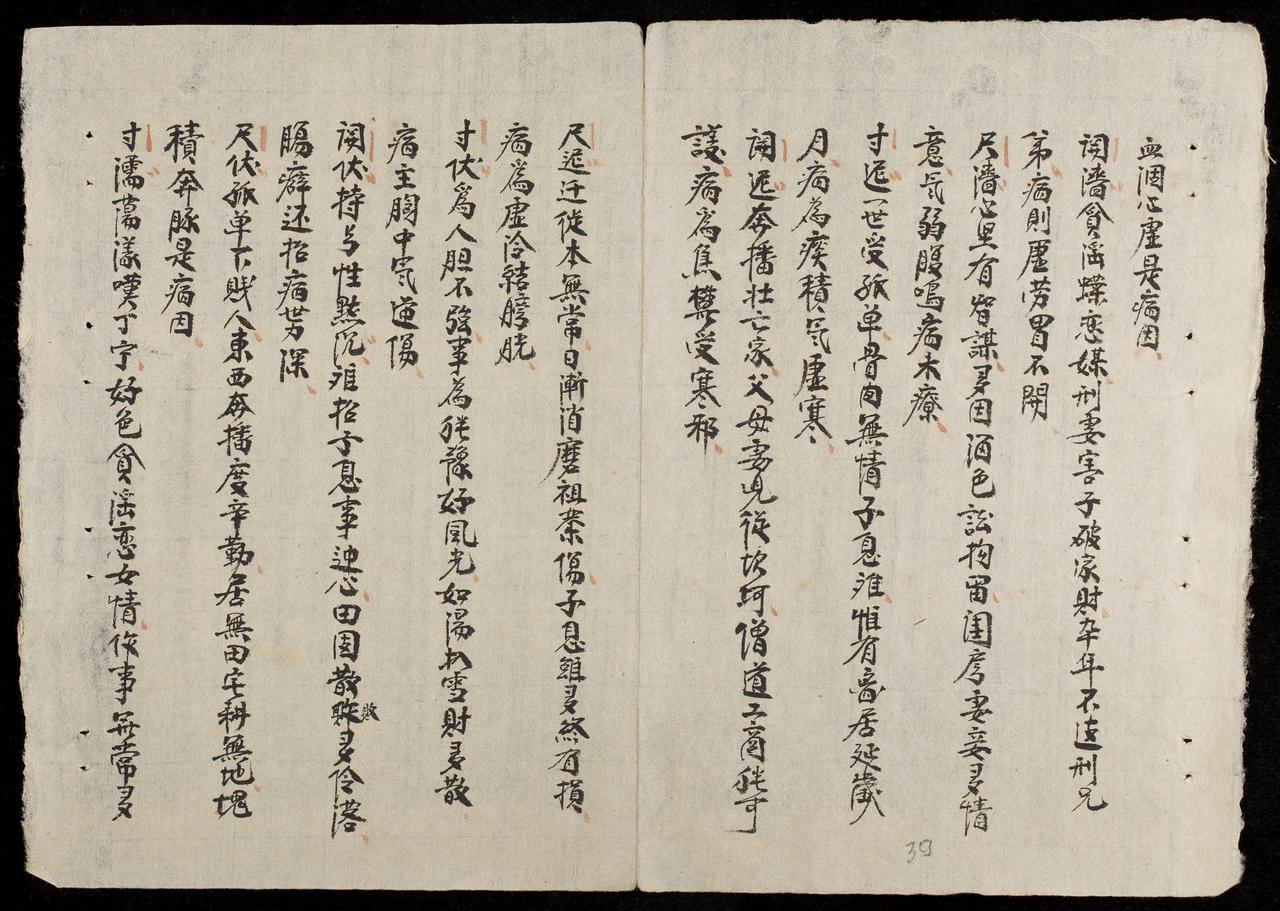 血凅心虛是病因
関濇貪滛蝶恋媒刑妻害子破家財卆年不遠刑兄
弟病則虛労胃不開
尺濇心里有智謀多因酒色訟拘畱閨房妻妾多情
意氣弱腹鳴病未療
寸迟一世受孤单骨肉無情子息难惟有斎居延歲
月病為痰積氣虛寒
関迟奔播壮亡家父母妻児從坎坷僧道工商胜可
護病為焦蘖受寒邪
尺迟迁徙本無常日漸消磨祖業傷子息雖多終有損
病為虛冷結膀胱
寸伏為人胆不強事為犹豫好風光如湯扒雪財多散
病主胸中氣逆傷
関伏持与性黙沉难招子息事迍心田園散敗多伶落
腸癖还招病势深
尺伏孤单下賎人東西奔播度辛勤居無田宅耕無地塊
積奔豚是病因
寸濡蕩漾嘆丁宁好色貪滛恋女情作事無常多
39